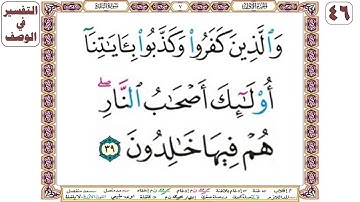 التفسير
في
الوصف
٤٦
٧
وَٱلَّذِينَ كَفَرُوا۟ وَكَذَّبُوا۟ بِـَٔايَـٰتِنَآ
أُو۟لَـٰٓئِكَ أَصْحَـٰبُ ٱلنَّارِ ۖ
هُمْ فِيهَا خَـٰلِدُونَ ٣٩